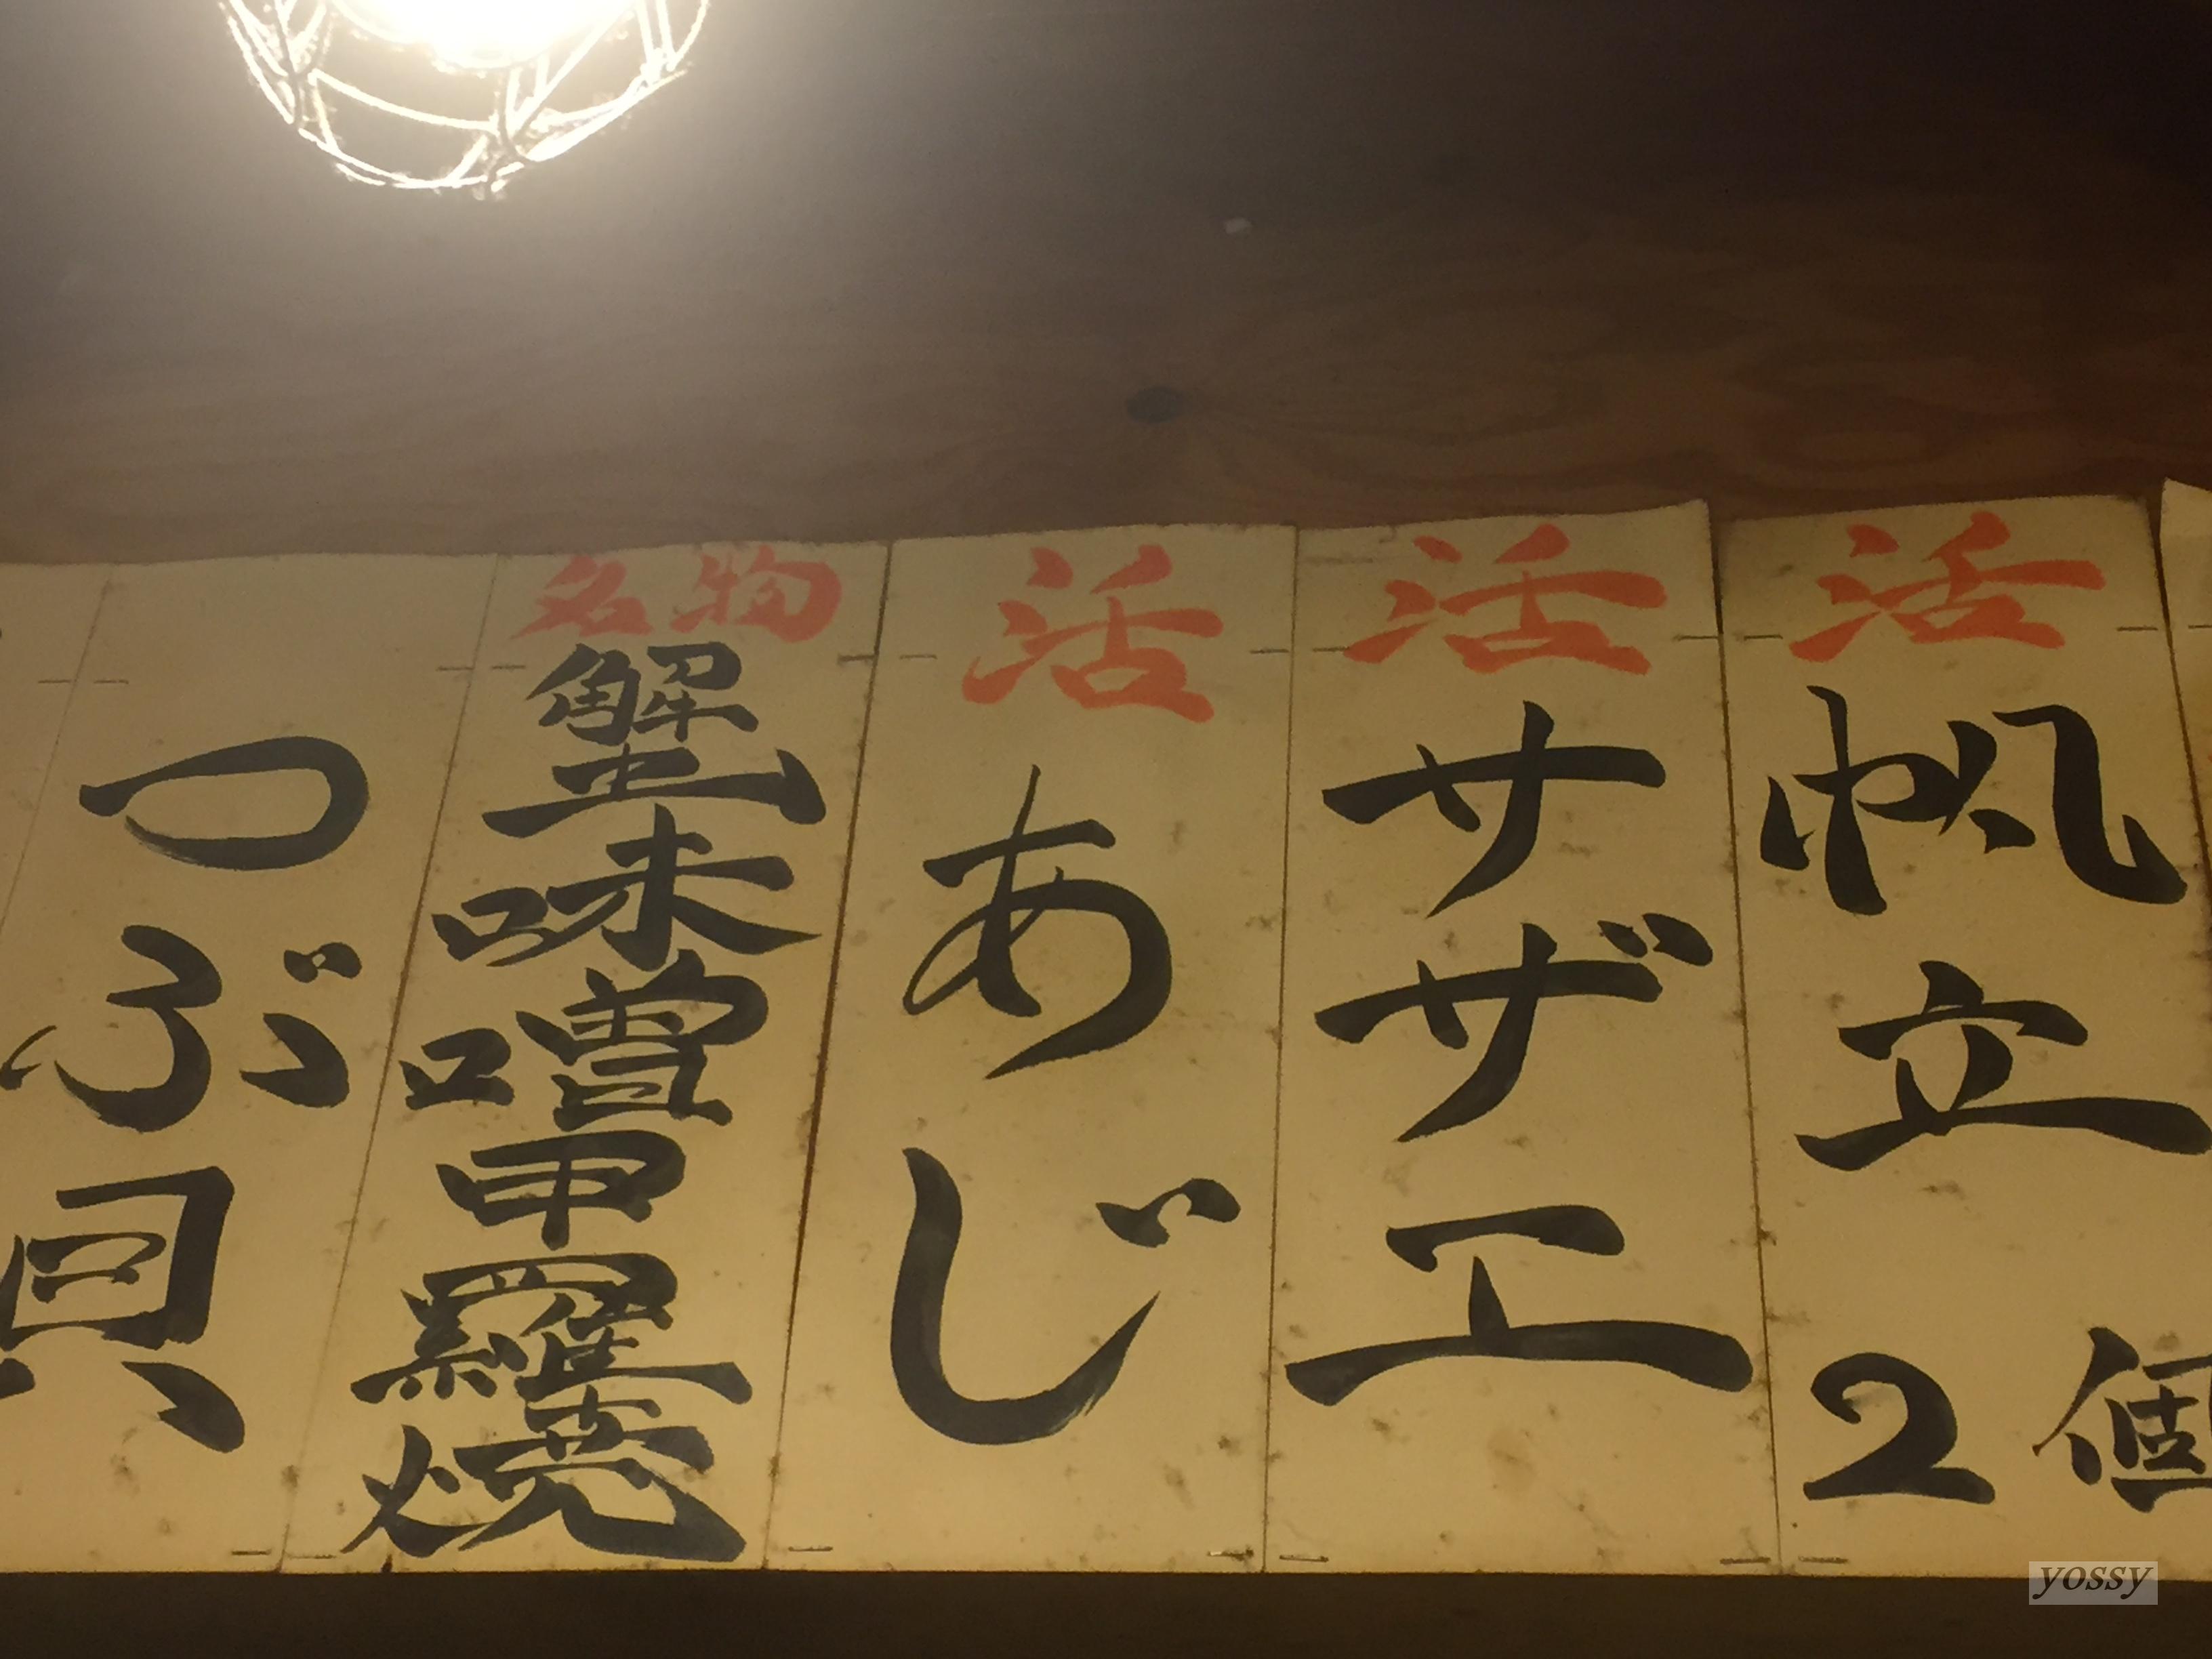 活
帆立
2個
活
サザエ
活
あじ
名物
蟹味噌甲羅焼
つぶ貝
yossy